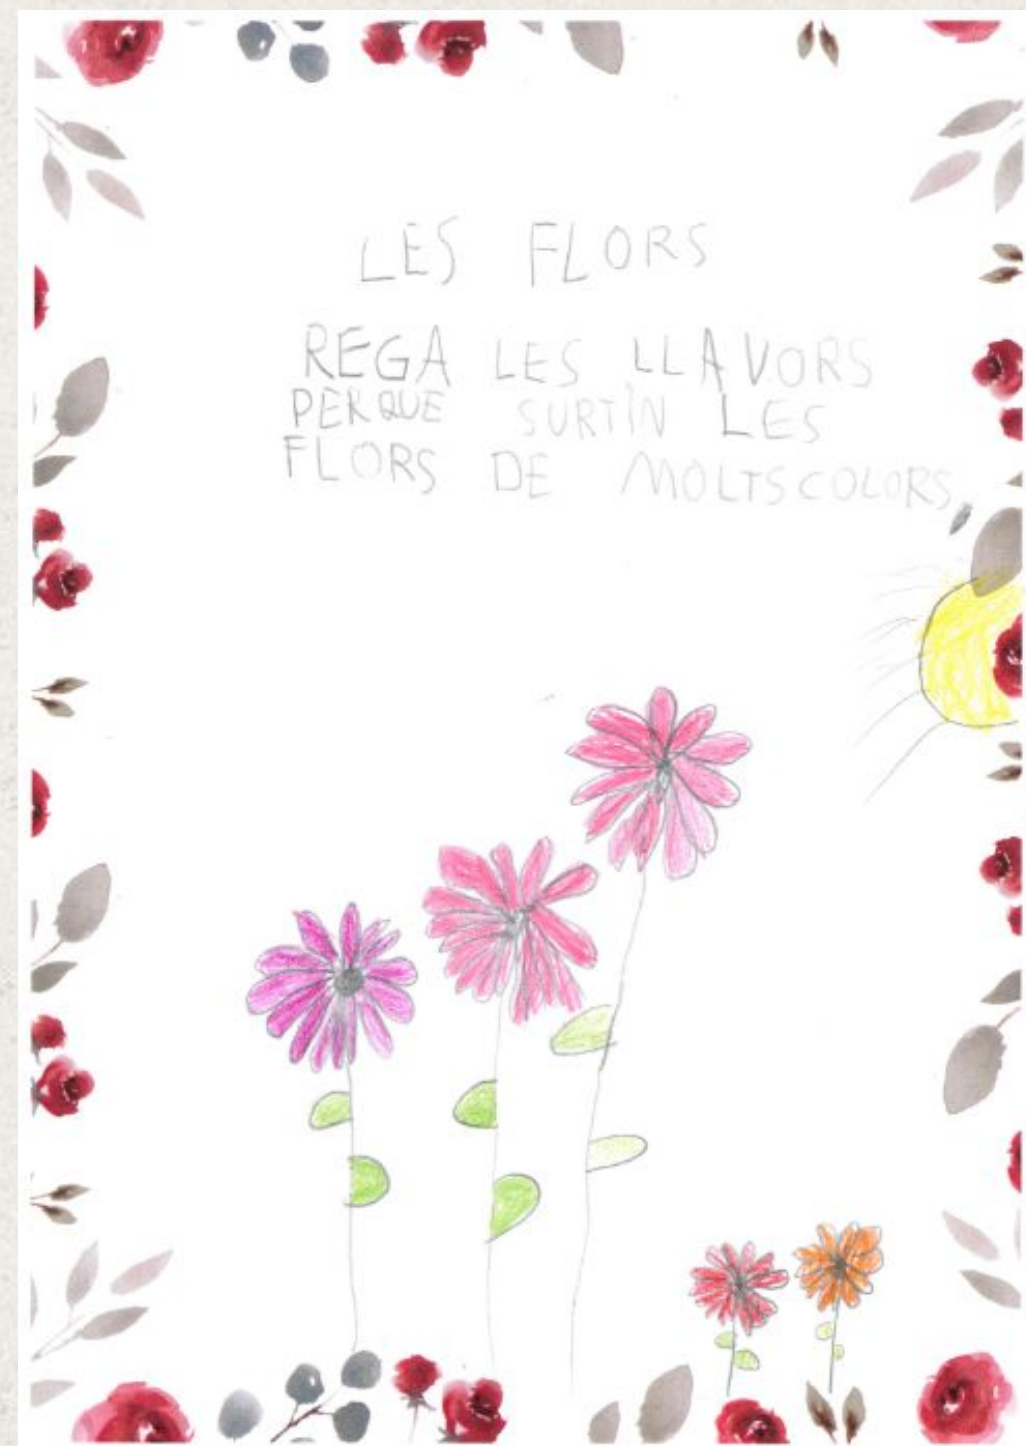 LES FLORS
REGA LES LLAVORS
PERQUE SURTIN LES
FLORS DE MOLTS COLORS